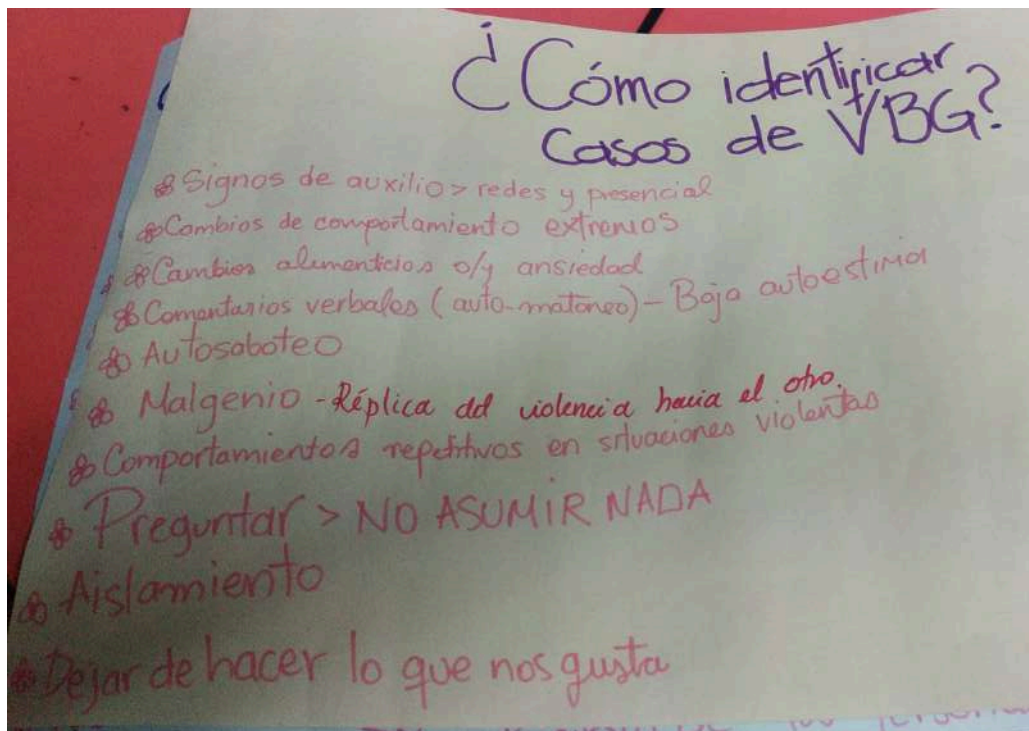 ¿Cómo identificar
Casos de VBG?
Signos de auxilio > redes y presencial
Cambios de comportamiento extremos
Cambios alimenticios o/y ansiedad
Comentarios verbales (auto-matoneo) - Baja autoestima
Autosaboteo
Malgenio - Réplica del violencia hacia el otro.
Comportamientos repetitivos en situaciones violentas
Preguntar > NO ASUMIR NADA
Aislamiento
Dejar de hacer lo que nos gusta